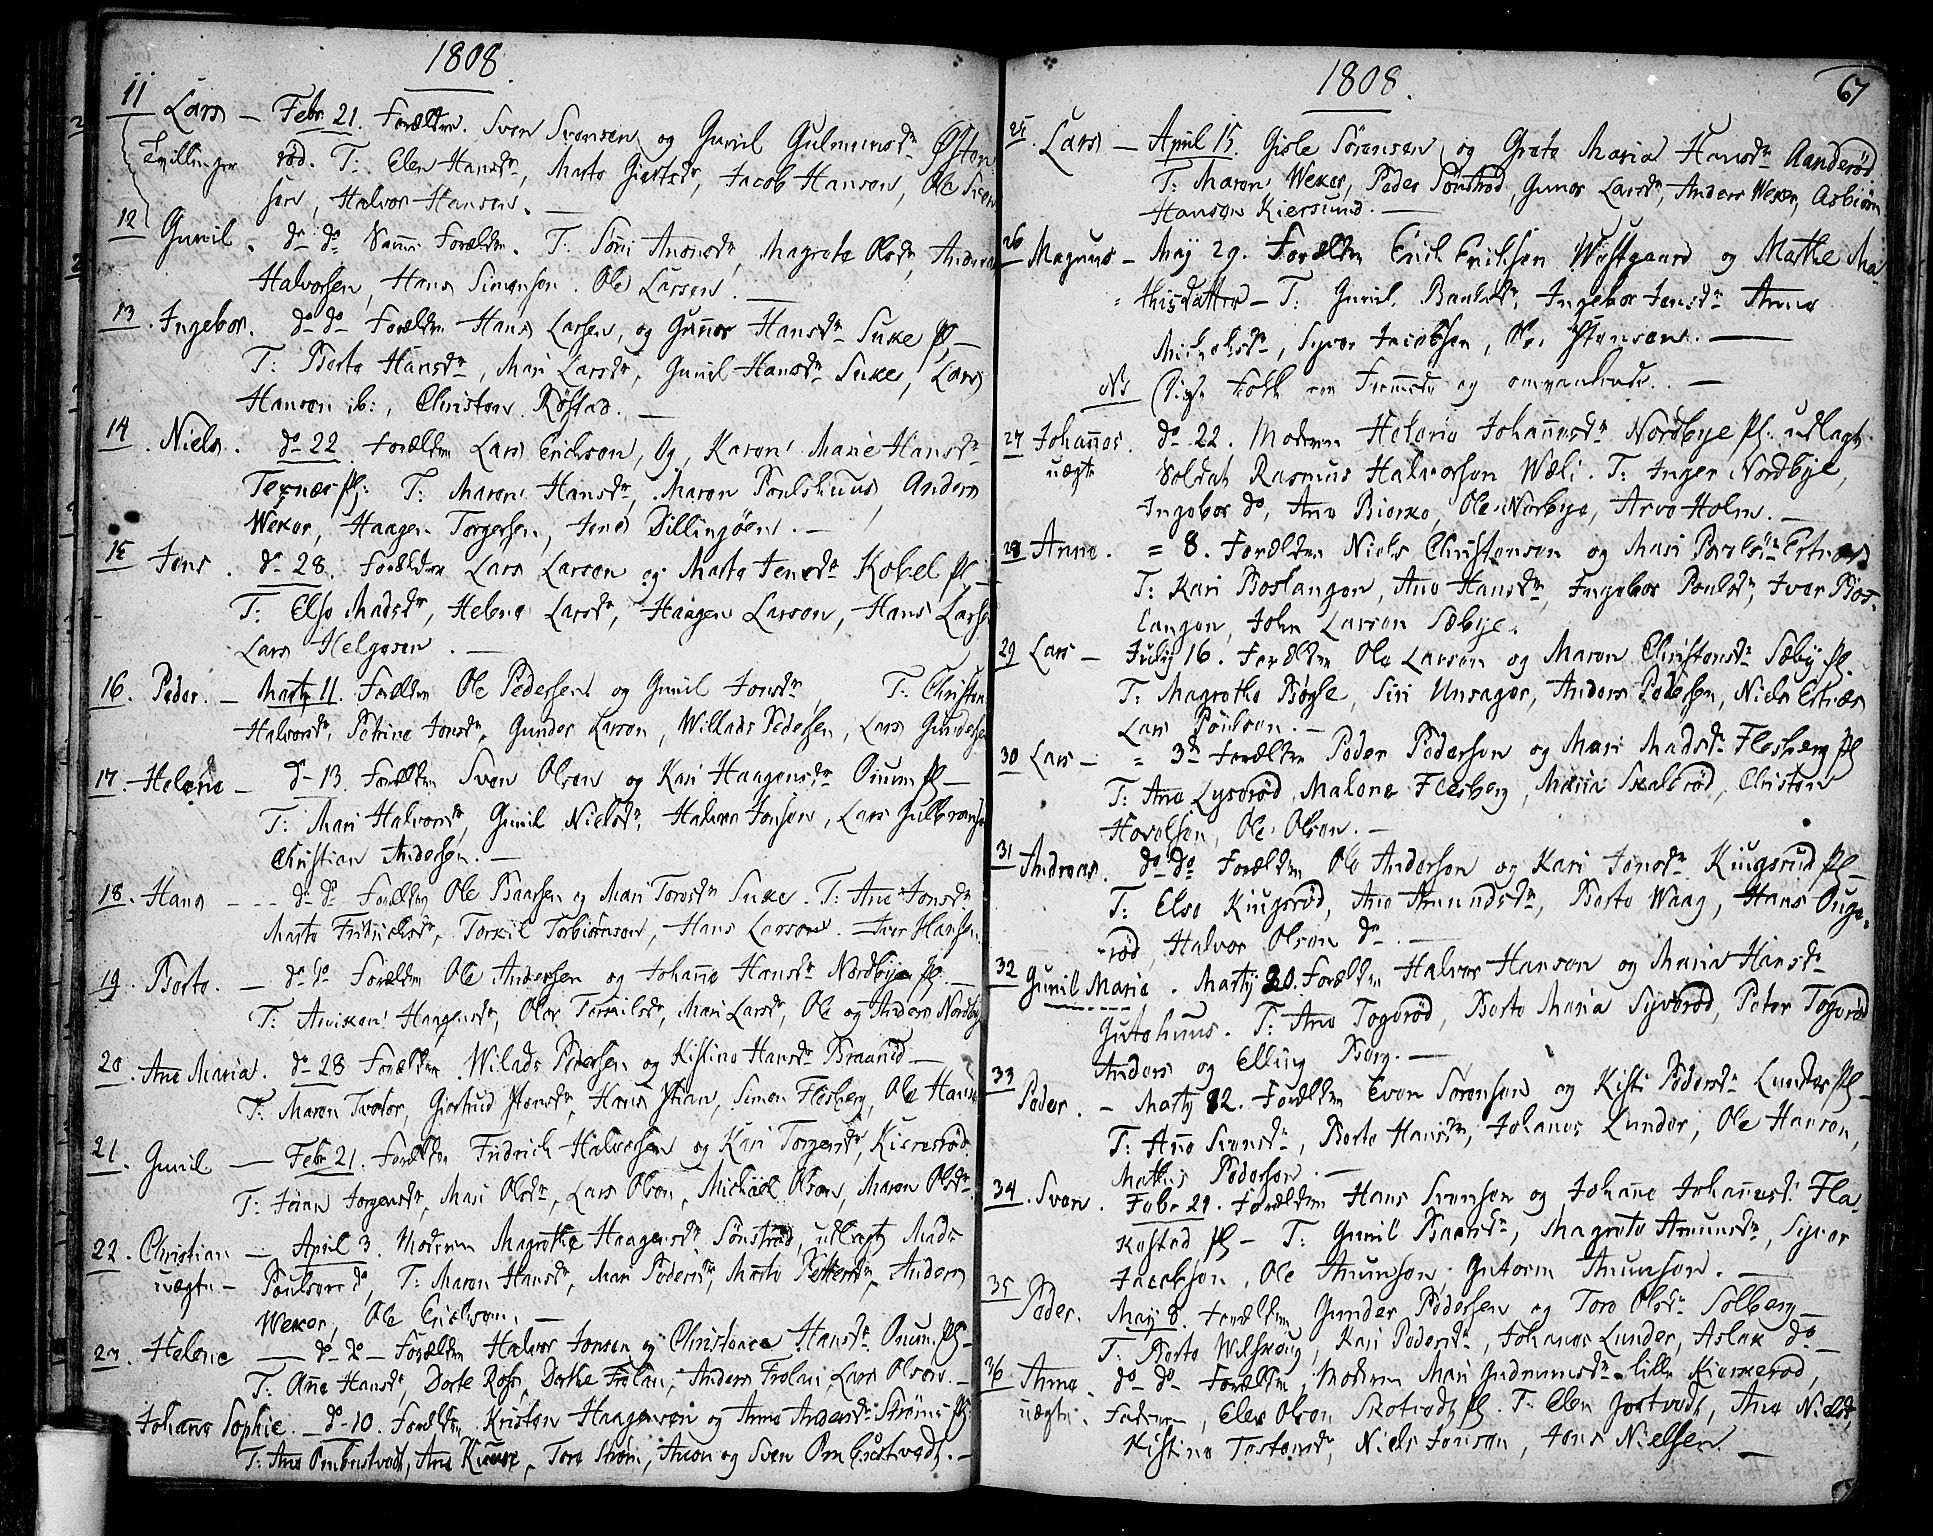 1808.
11 Lars — Febr 21. Forældre. Sven Svensen og Gunil Gulmunsdr Østen
Tvillinger rød. T: Elen Hansdr, Marte Giertsdr, Jacob Hansen, Ole Sven
sen, Halvor Hansen. —
12 Gunil. do do Samme Forældre. T: Siri Amonsdr, Magrete Olsdr, Anders
Halvorsen, Hans Simonsen. Ole Larsen. —
13. Ingebor. do do Forældre Hans Larsen, og Gunnor Hansdr Suxe Pl —
T: Berte Hansdr, Mari Larsdr, Gunil Hansdr Suxe, Lars
Hansen ib:, Christen Røstad. —
14. Niels. do 22 Forældre Lars Erichsen, Og, Karen Marie Hansdr
Texnes Pl: T: Maren Hansdr, Maren Poulshuus, Anders
Wexer, Haagen Torgersen, Jens Dillingøen. —
15 Jens. do 28. Forældre Lars Larsen og Marte Jensdr Kobel Pl —
T: Else Madsdr, Helene Larsdr, Haagen Larsen, Hans Larsen
Lars Helgesen. —
16. Peder. — Marty 11. Forældre Ole Pedersen og Gunil Jonsdr T: Christen
Halvorsdr, Petrine Jonsdr, Gunder Larsen, Willads Pedersen, Lars Gundersen
17. Helene — do 13. Forældre Sven Olsen og Kari Haagensdr Ouum Pl —
T: Mari Halvorsdr, Gunil Nielsdr, Halvor Jonsen, Lars Gulbransen
Christian Andersen. —
18. Hans — do do Forældre Ole Baarsen og Mari Toresdr Suxe. T: Ane Jonsdr
Marte Fridrichsdr, Torkil Torbiørnsen, Hans Larsen. Iver Hansen
19. Berte. — do do Forældre Ole Andersen og Johanne Hansdr Nordbye Pl. —
T: Anixen Haagensdr, Olor Torkilsdr, Mari Larsdr, Ole og Anders Nordby
20. Ane Maria. do 28 Forældre Wilads Pedersen og Kistine Hansdr Braarud —
T: Maren Tveter, Giertrud Stensdr, Hans Stian, Simen Flesberg, Ole Hansen
21. Gunil — Febr 21. Forældre Fridrich Halvorsen og Kari Torgersdr, Kierresrød.
T: Jøran Jørgensdr, Mari Olsdr, Lars Olsen, Michael Olsen, Maren Olsdr
22. Christian — April 3. Moderen Magrethe Haagensdr Sønstrød, udlagt Mads
uægte — Poulsen do, T: Maren Hansdr, Mari Pedersdr, Marte Pettersdr, Anders
Wexer, Ole Erichsen. —
23. Helene — do do — Forældre Halvor Jonsen og Christence Hansdr Ouum Pl —
T: Anne Hansdr, Dorte Ross, Dorthe Frølan, Anders Frølan, Lars Olsen. —
Johanne Sophie. — do 10. Forældre Kristen Haagensen og Anne Andersdr Strøms Pl
T: Ane Ombustvedt, Ane Kiuxe, Tore Strøm, Amon og Sven Ombustvedt. —
1808. 67
25. Lars — April 15. Gisle Sørensen og Grete Maria Hansdr Aanderød
T: Maren Wexer, Peder Sønstrød, Gunor Larsdr, Anders Wexer, Asbiørn
Hansen Kiersund. —
26 Magnus — May 29. Forældre Erich Erichsen Westgaard og Mathe Ma-
thisdatter — T: Gunil Baardsdr, Ingebor Jensdr Anne
Michelsdr, Syver Jacobsen, Ole Stensen. —
NB Disse Folk ere Fremmede og omvankende. —
27 Johannes. do 22. Moderen Helene Johannesdr Nordbye Pl. udlagt
uægte Soldat Rasmus Halvorsen Wæli. T: Inger Nordbye,
Ingebor do, Ane Bierke, Ole Norbye, Arve Holm. —
28 Anne. = 8. Forældre Niels Christensen og Mari Povelsdr Estnæs
T: Kari Boslangen, Ane Hansdr, Ingebor Poulsdr, Iver Bos-
langen, John Larsen Sæbye.
29 Lars — July 16. Forældre Ole Larsen og Maren Christensdr Sæby Pl.
T: Magrethe Bøgle, Siri Unsager, Anders Pedersen, Niels Estnæs
Lars Poulsen. —
30 Lars — = 3d Forældre Peder Pedersen og Mari Madsdr Flesberg Pl
T: Ane Lyserød, Malene Flesberg, Maria Skalerød, Christen
Hovelsen, Ole Olsen. —
31 Andreas. do do Forældre Ole Andersen og Kari Jonsdr Kiugsrud Pl —
T: Else Kiugsrød, Ane Amundsdr, Berte Waag, Hans Ouge-
rød, Halvor Olsen do —
32 Gunil Marie. Marty 20. Forældre Halvor Hansen og Maria Hansdr
Gutehuus. T: Ane Togerød, Berte Maria Syverød, Peter Togerød
Anders og Elling Berg. —
33 Peder. — Marty 12. Forældre Even Sørensen og Kisti Pedersdr Lunder Pl —
T: Ane Svensdr, Berte Hansdr, Johanes Lunder, Ole Hansen,
Mathis Pedersen. —
34. Sven. Febr 21. Forældre Hans Svensen og Johanne Johannesdr Fla-
kestad Pl — T: Gunil Baarsdr, Magrete Amunsdr, Syver
Jacobsen, Ole Amunsen, Gutorm Amunsen. —
35 Peder. May 8. Forældre Gunder Pedersen og Tore Olsdr Solberg —
T: Berte Wilskoug, Kari Pedersdr, Johanes Lunder, Aslak do —
36 Anne. do do Forældre, Moderen Mari Gudmunsdr lille Kierxerød,
uægte. Faderen, Elev Olsen Skotvedt Pl. T: Elen Jostvedt, Ane Nielsdr,
Kistine Tostensdr, Niels Jensen, Jens Nielsen —